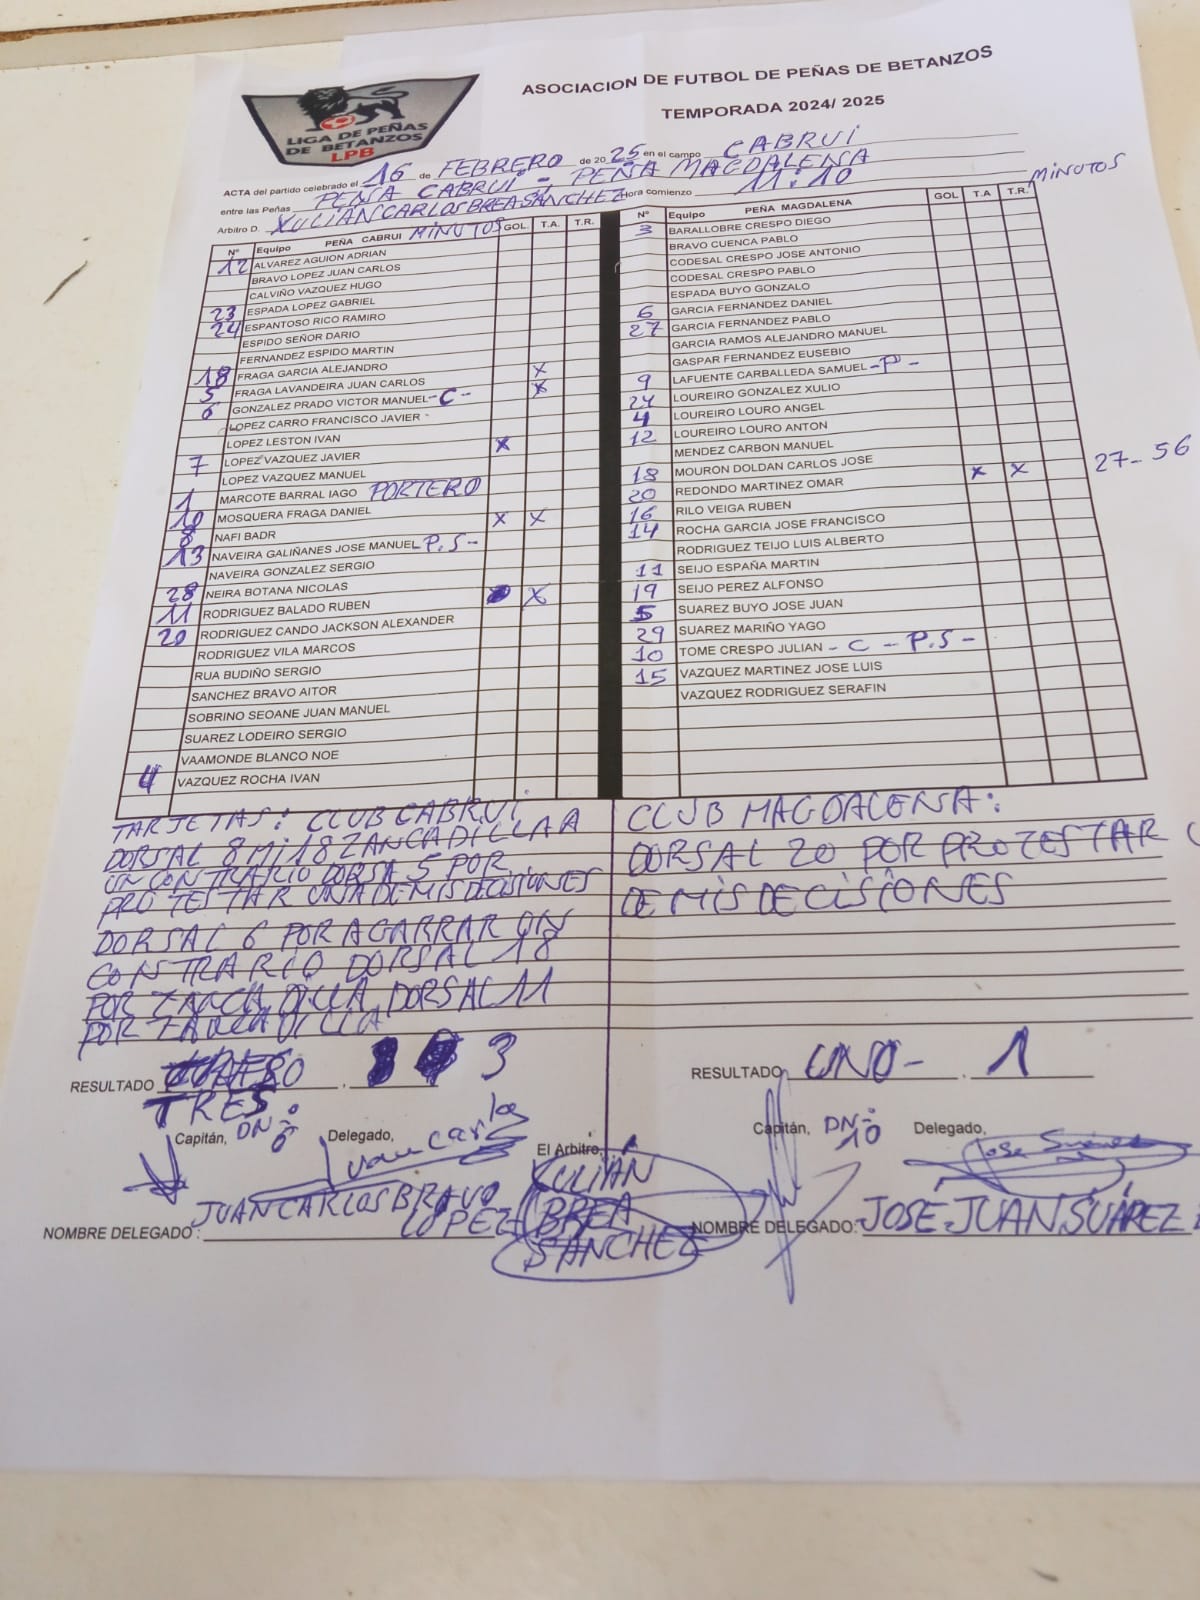 ASOCIACION DE FUTBOL DE PEÑAS DE BETANZOS
TEMPORADA 2024/ 2025
LIGA DE PEÑAS
DE BETANZOS
LPB
ACTA del partido celebrado el 16 de FEBRERO de 2025 en el campo CABRUI
entre las Peñas PEÑA CABRUI - PEÑA MAGDALENA
Arbitro D. XULIAN CARLOS BREA SANCHEZ Hora comienzo 11:10
Nº Equipo PEÑA CABRUI MINUTOS GOL T.A. T.R.
12 ALVAREZ AGUION ADRIAN
BRAVO LOPEZ JUAN CARLOS
CALVIÑO VAZQUEZ HUGO
23 ESPADA LOPEZ GABRIEL
24 ESPANTOSO RICO RAMIRO
ESPIDO SEÑOR DARIO
FERNANDEZ ESPIDO MARTIN
18 FRAGA GARCIA ALEJANDRO x
5 FRAGA LAVANDEIRA JUAN CARLOS x
6 GONZALEZ PRADO VICTOR MANUEL -C-
LOPEZ CARRO FRANCISCO JAVIER
LOPEZ LESTON IVAN x
7 LOPEZ VAZQUEZ JAVIER
LOPEZ VAZQUEZ MANUEL
1 MARCOTE BARRAL IAGO PORTERO
10 MOSQUERA FRAGA DANIEL x x
8 NAFI BADR
13 NAVEIRA GALIÑANES JOSE MANUEL P.S-
NAVEIRA GONZALEZ SERGIO
28 NEIRA BOTANA NICOLAS x
11 RODRIGUEZ BALADO RUBEN
20 RODRIGUEZ CANDO JACKSON ALEXANDER
RODRIGUEZ VILA MARCOS
RUA BUDIÑO SERGIO
SANCHEZ BRAVO AITOR
SOBRINO SEOANE JUAN MANUEL
SUAREZ LODEIRO SERGIO
VAAMONDE BLANCO NOE
4 VAZQUEZ ROCHA IVAN
Nº Equipo PEÑA MAGDALENA GOL T.A T.R. MINUTOS
3 BARALLOBRE CRESPO DIEGO
BRAVO CUENCA PABLO
CODESAL CRESPO JOSE ANTONIO
CODESAL CRESPO PABLO
ESPADA BUYO GONZALO
6 GARCIA FERNANDEZ DANIEL
27 GARCIA FERNANDEZ PABLO
GARCIA RAMOS ALEJANDRO MANUEL
GASPAR FERNANDEZ EUSEBIO
9 LAFUENTE CARBALLEDA SAMUEL -P-
24 LOUREIRO GONZALEZ XULIO
4 LOUREIRO LOURO ANGEL
12 LOUREIRO LOURO ANTON
MENDEZ CARBON MANUEL
18 MOURON DOLDAN CARLOS JOSE
20 REDONDO MARTINEZ OMAR x x 27-56
16 RILO VEIGA RUBEN
14 ROCHA GARCIA JOSE FRANCISCO
RODRIGUEZ TEIJO LUIS ALBERTO
11 SEIJO ESPAÑA MARTIN
19 SEIJO PEREZ ALFONSO
5 SUAREZ BUYO JOSE JUAN
29 SUAREZ MARIÑO YAGO
10 TOME CRESPO JULIAN - C - P.S-
15 VAZQUEZ MARTINEZ JOSE LUIS
VAZQUEZ RODRIGUEZ SERAFIN
TARJETAS: CLUB CABRUI
DORSAL 8 Mi 18 ZANCADILLA A
UN CONTRARIO DORSA 5 POR
PROTESTAR UNA DE MIS DECISIONES
DORSAL 6 POR AGARRAR UN
CONTRARIO DORSAL 18
POR ZANCADILLA DORSAL 11
POR ZANCADILLA
CLUB MAGDALENA:
DORSAL 20 POR PROTESTAR
DE MIS DECISIONES
RESULTADO 3
TRES
RESULTADO UNO- 1
Capitán, DNº 6 Delegado, Juan Carlos
El Arbitro,
XULIÁN
BREA
SANCHEZ
Capitán, DNº 10 Delegado, Jose Suarez
NOMBRE DELEGADO: JUAN CARLOS BRAVO
LOPEZ
NOMBRE DELEGADO: JOSÉ JUAN SUÁREZ